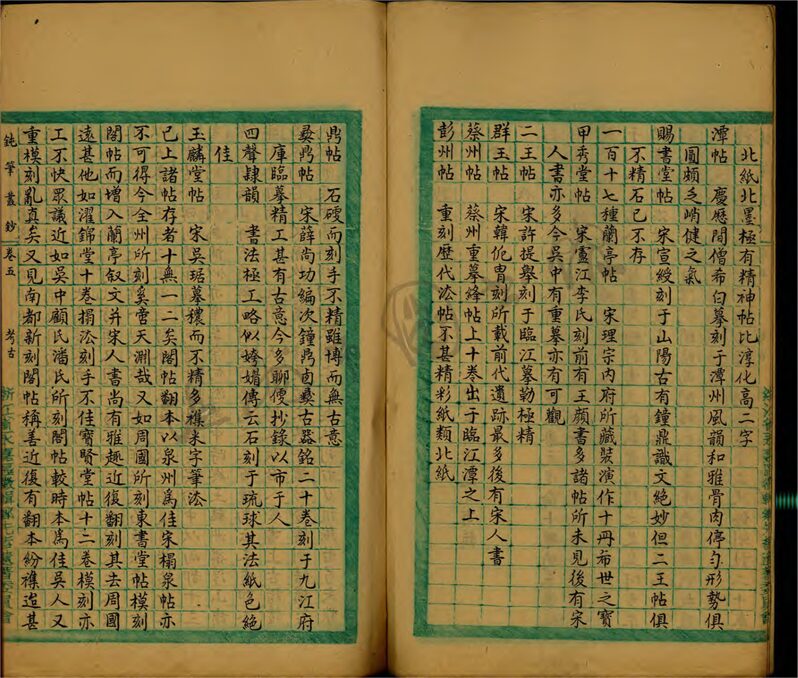 北紙北墨極有精神帖比淳化高二字
潭帖　慶應間僧希白摹刻于潭州風韻和雅骨肉停勻形勢俱
圓頗乏峭健之氣
賜書堂帖　宋宣綬刻于山陽古有鐘鼎識文絶妙但二王帖俱
不精石已不存
一百十七種蘭亭帖　宋理宗内府所藏裝演作十冊希世之寶
甲秀堂帖　宋廬江李氏刻前有王顏書多諸帖所未見後有宋
人書亦多今吳中有重摹亦有可觀
二王帖　宋許提舉刻于臨江摹勒極精
群玉帖　宋韓侂胄刻所載前代遺跡最多後有宋人書
蔡州帖　蔡州重摹絳帖上十卷出于臨江潭之上
彭州帖　重刻歷代法帖不甚精彩紙類北紙
鼎帖　石硬而刻手不精雖博而無古意
彝鼎帖　宋薛尚功編次鐘鼎卣彝古器銘二十卷刻于九江府
庫臨摹精工甚有古意今多聊便抄錄以市于人
四聲隸韻　書法極工略似婍媚傳云石刻于琉球其法紙色絶
佳
玉麟堂帖　宋吳琚摹穠而不精多襍米字筆法
已上諸帖存者十無一二矣閣帖翻本以泉州爲佳宋榻泉帖亦
不可得今全州所刻奚啻天淵哉又如周國所刻東書堂帖模刻
閣帖而增入蘭亭叙文并宋人書尚有雅趣近復翻刻其去周國
遠甚他如濯錦堂十卷榻法刻手不佳寶賢堂帖十二卷模刻亦
工不快眾議近如吳中顧氏潘氏所刻閣帖較時本爲佳吳人又
重模刻亂真矣又見南都新刻閣帖稱善近復有翻本紛襍造甚
鈍筆叢鈔　卷五　考古